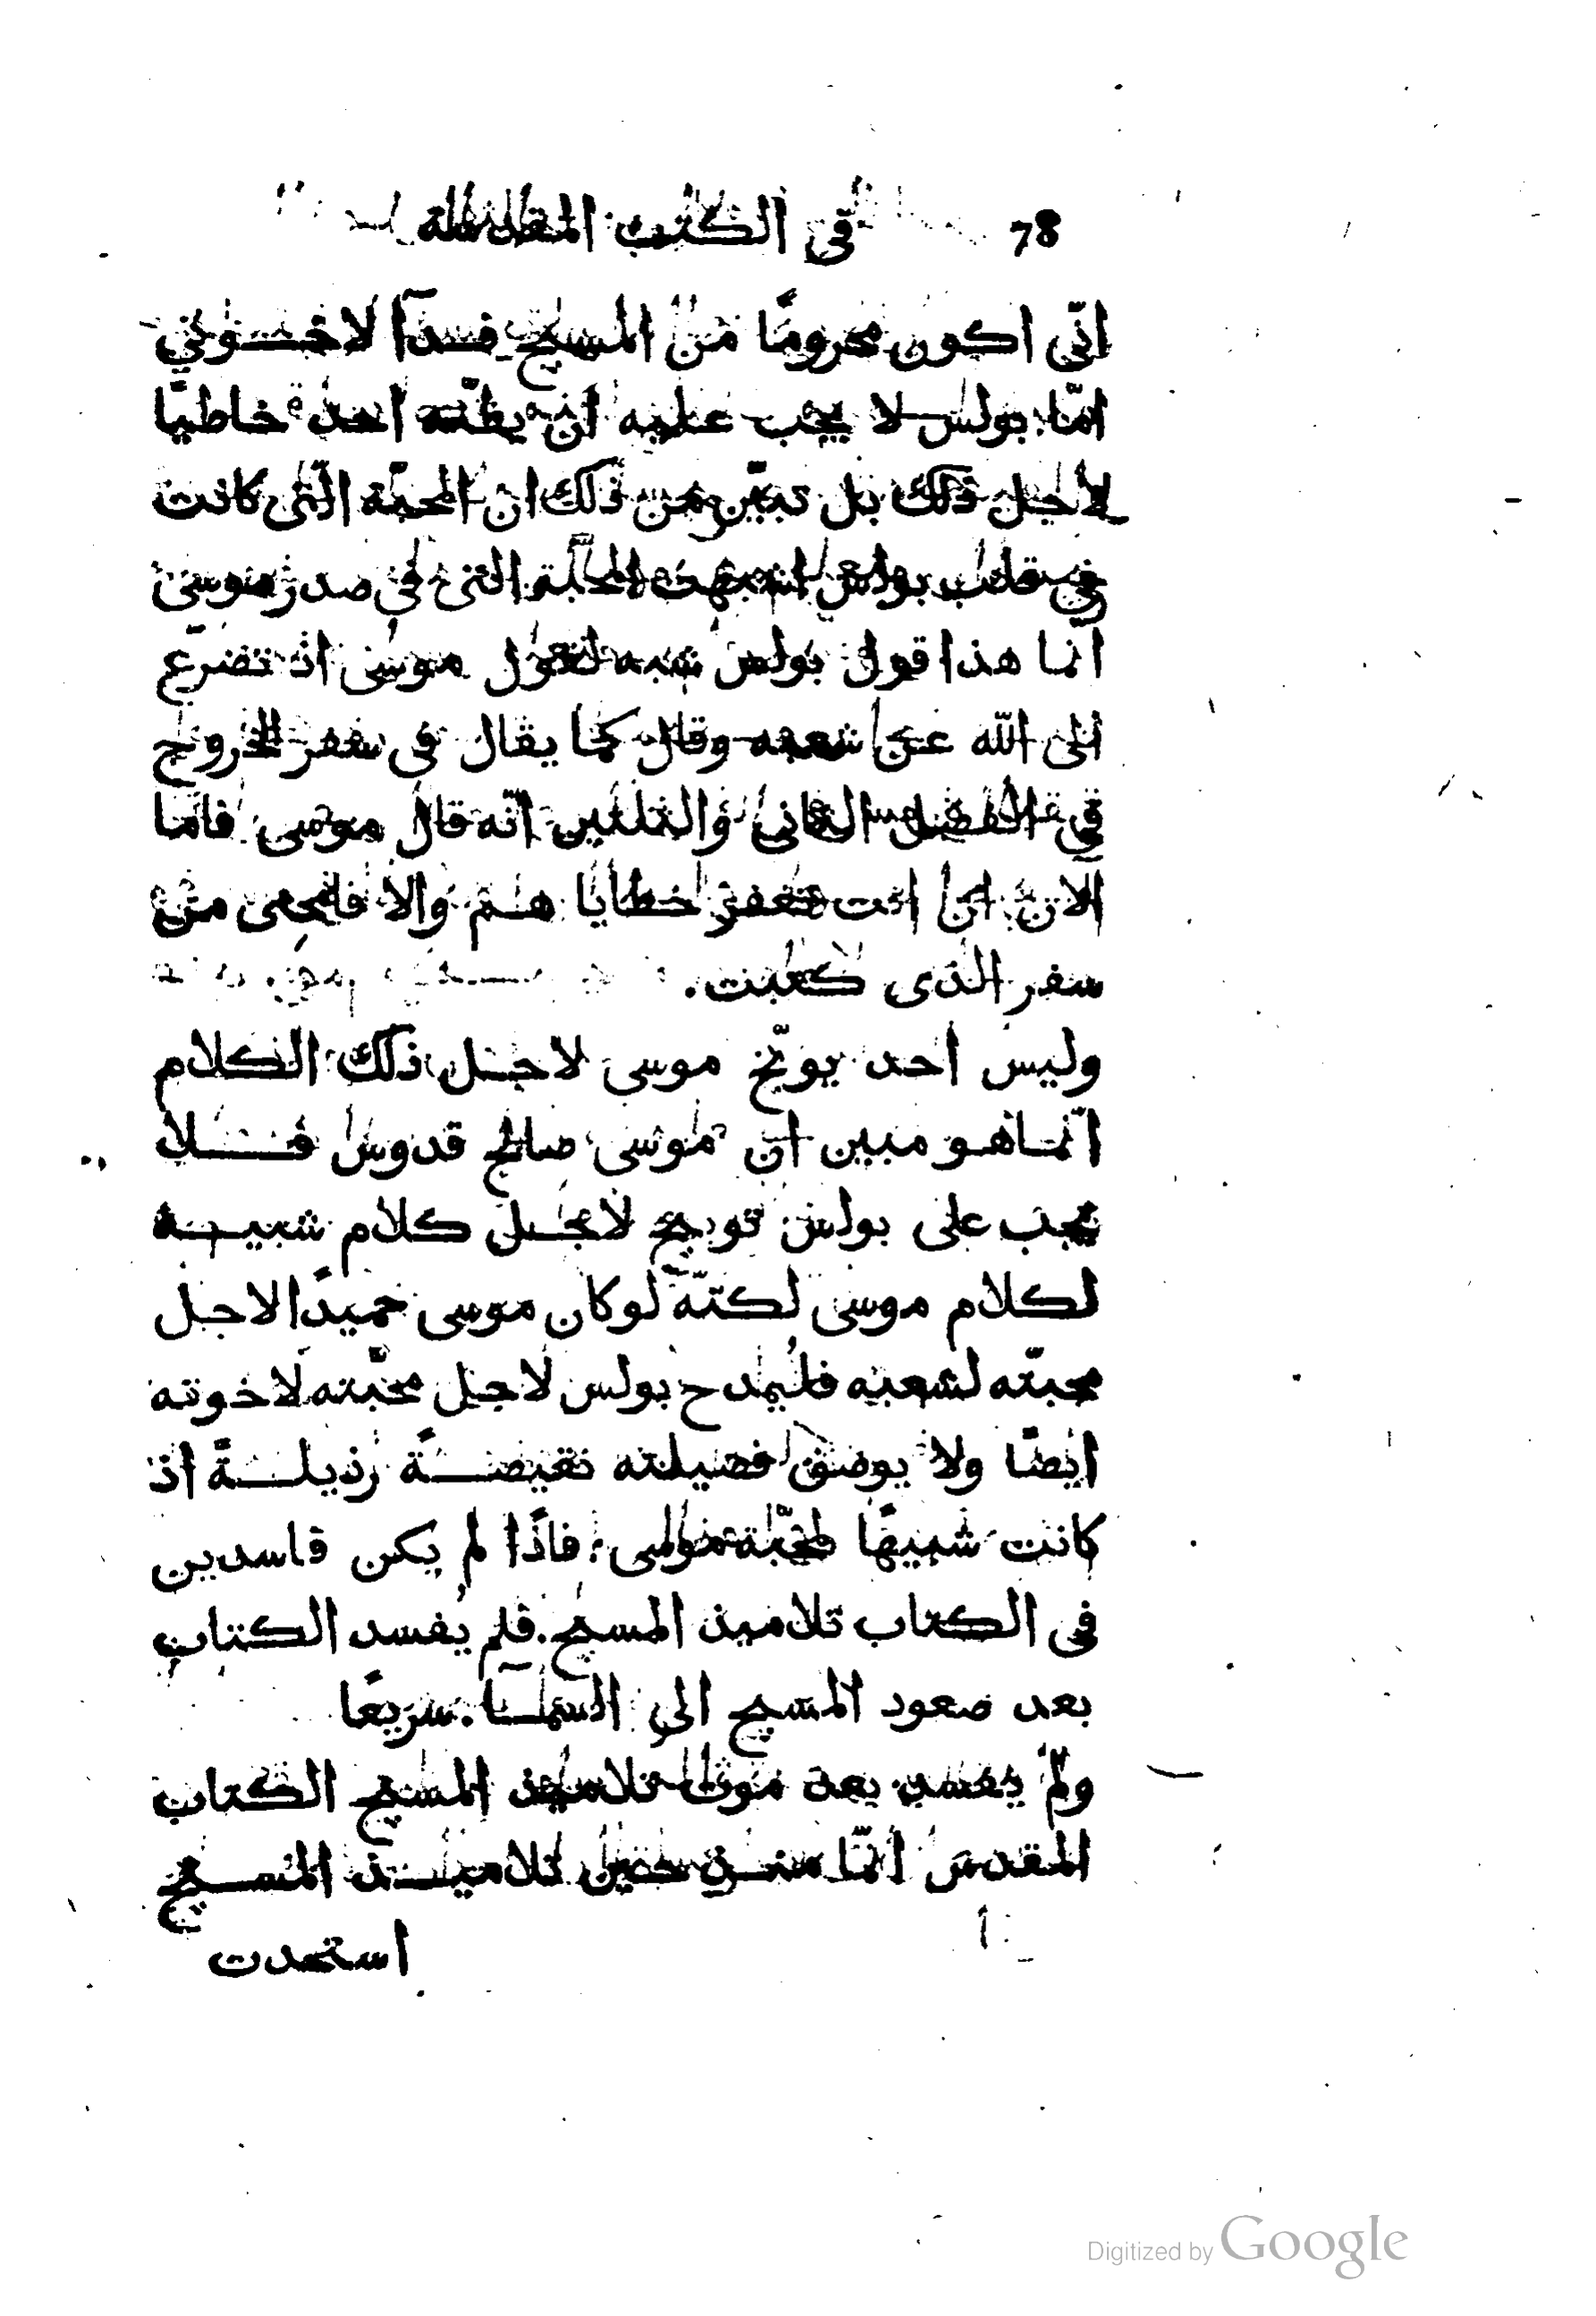 78 في الكتب المقدسة
انّي اكون محرومًا من المسيح فدآ لاخوتي
امّا بولس لا يجب عليه ان يظنّه احد خاطيًا
لاجل ذلك بل تبيّن من ذلك ان المحبّة الّتي كانت
في قلب بولس اشبهت المحبّة التي في صدر موسى
انّما هذا قول بولس شبه لقول موسى اذ تضرّع
الى الله عن شعبه وقال كما يقال في سفر الخروج
في الفصل الثاني والثلثين انّه قال موسى فامّا
الان ان انت تغفر خطايا هم والا فامحى من
سفر الذى كتبت.
وليس احد يوبّخ موسى لاجل ذلك الكلام
انّما هو مبين ان موسى صالح قدوس فلا
يجب على بولس توبيخ لاجل كلام شبيه
لكلام موسى لكنّه لو كان موسى حميدًا لاجل
محبّته لشعبه فليُمدح بولس لاجل محبّته لاخوته
ايضًا ولا يوصف فضيلته نقيصةً رذيلةً اذ
كانت شبيهًا لمحبّة موسى. فاذًا لم يكن فاسدين
في الكتاب تلاميذ المسيح. فلم يُفسد الكتاب
بعد صعود المسيح الى السمآ. سريعًا
ولم يفسد بعد موت تلاميذ المسيح الكتاب
المقدس انّما من حين تلاميذ المسيح
استمدت
Digitized by Google